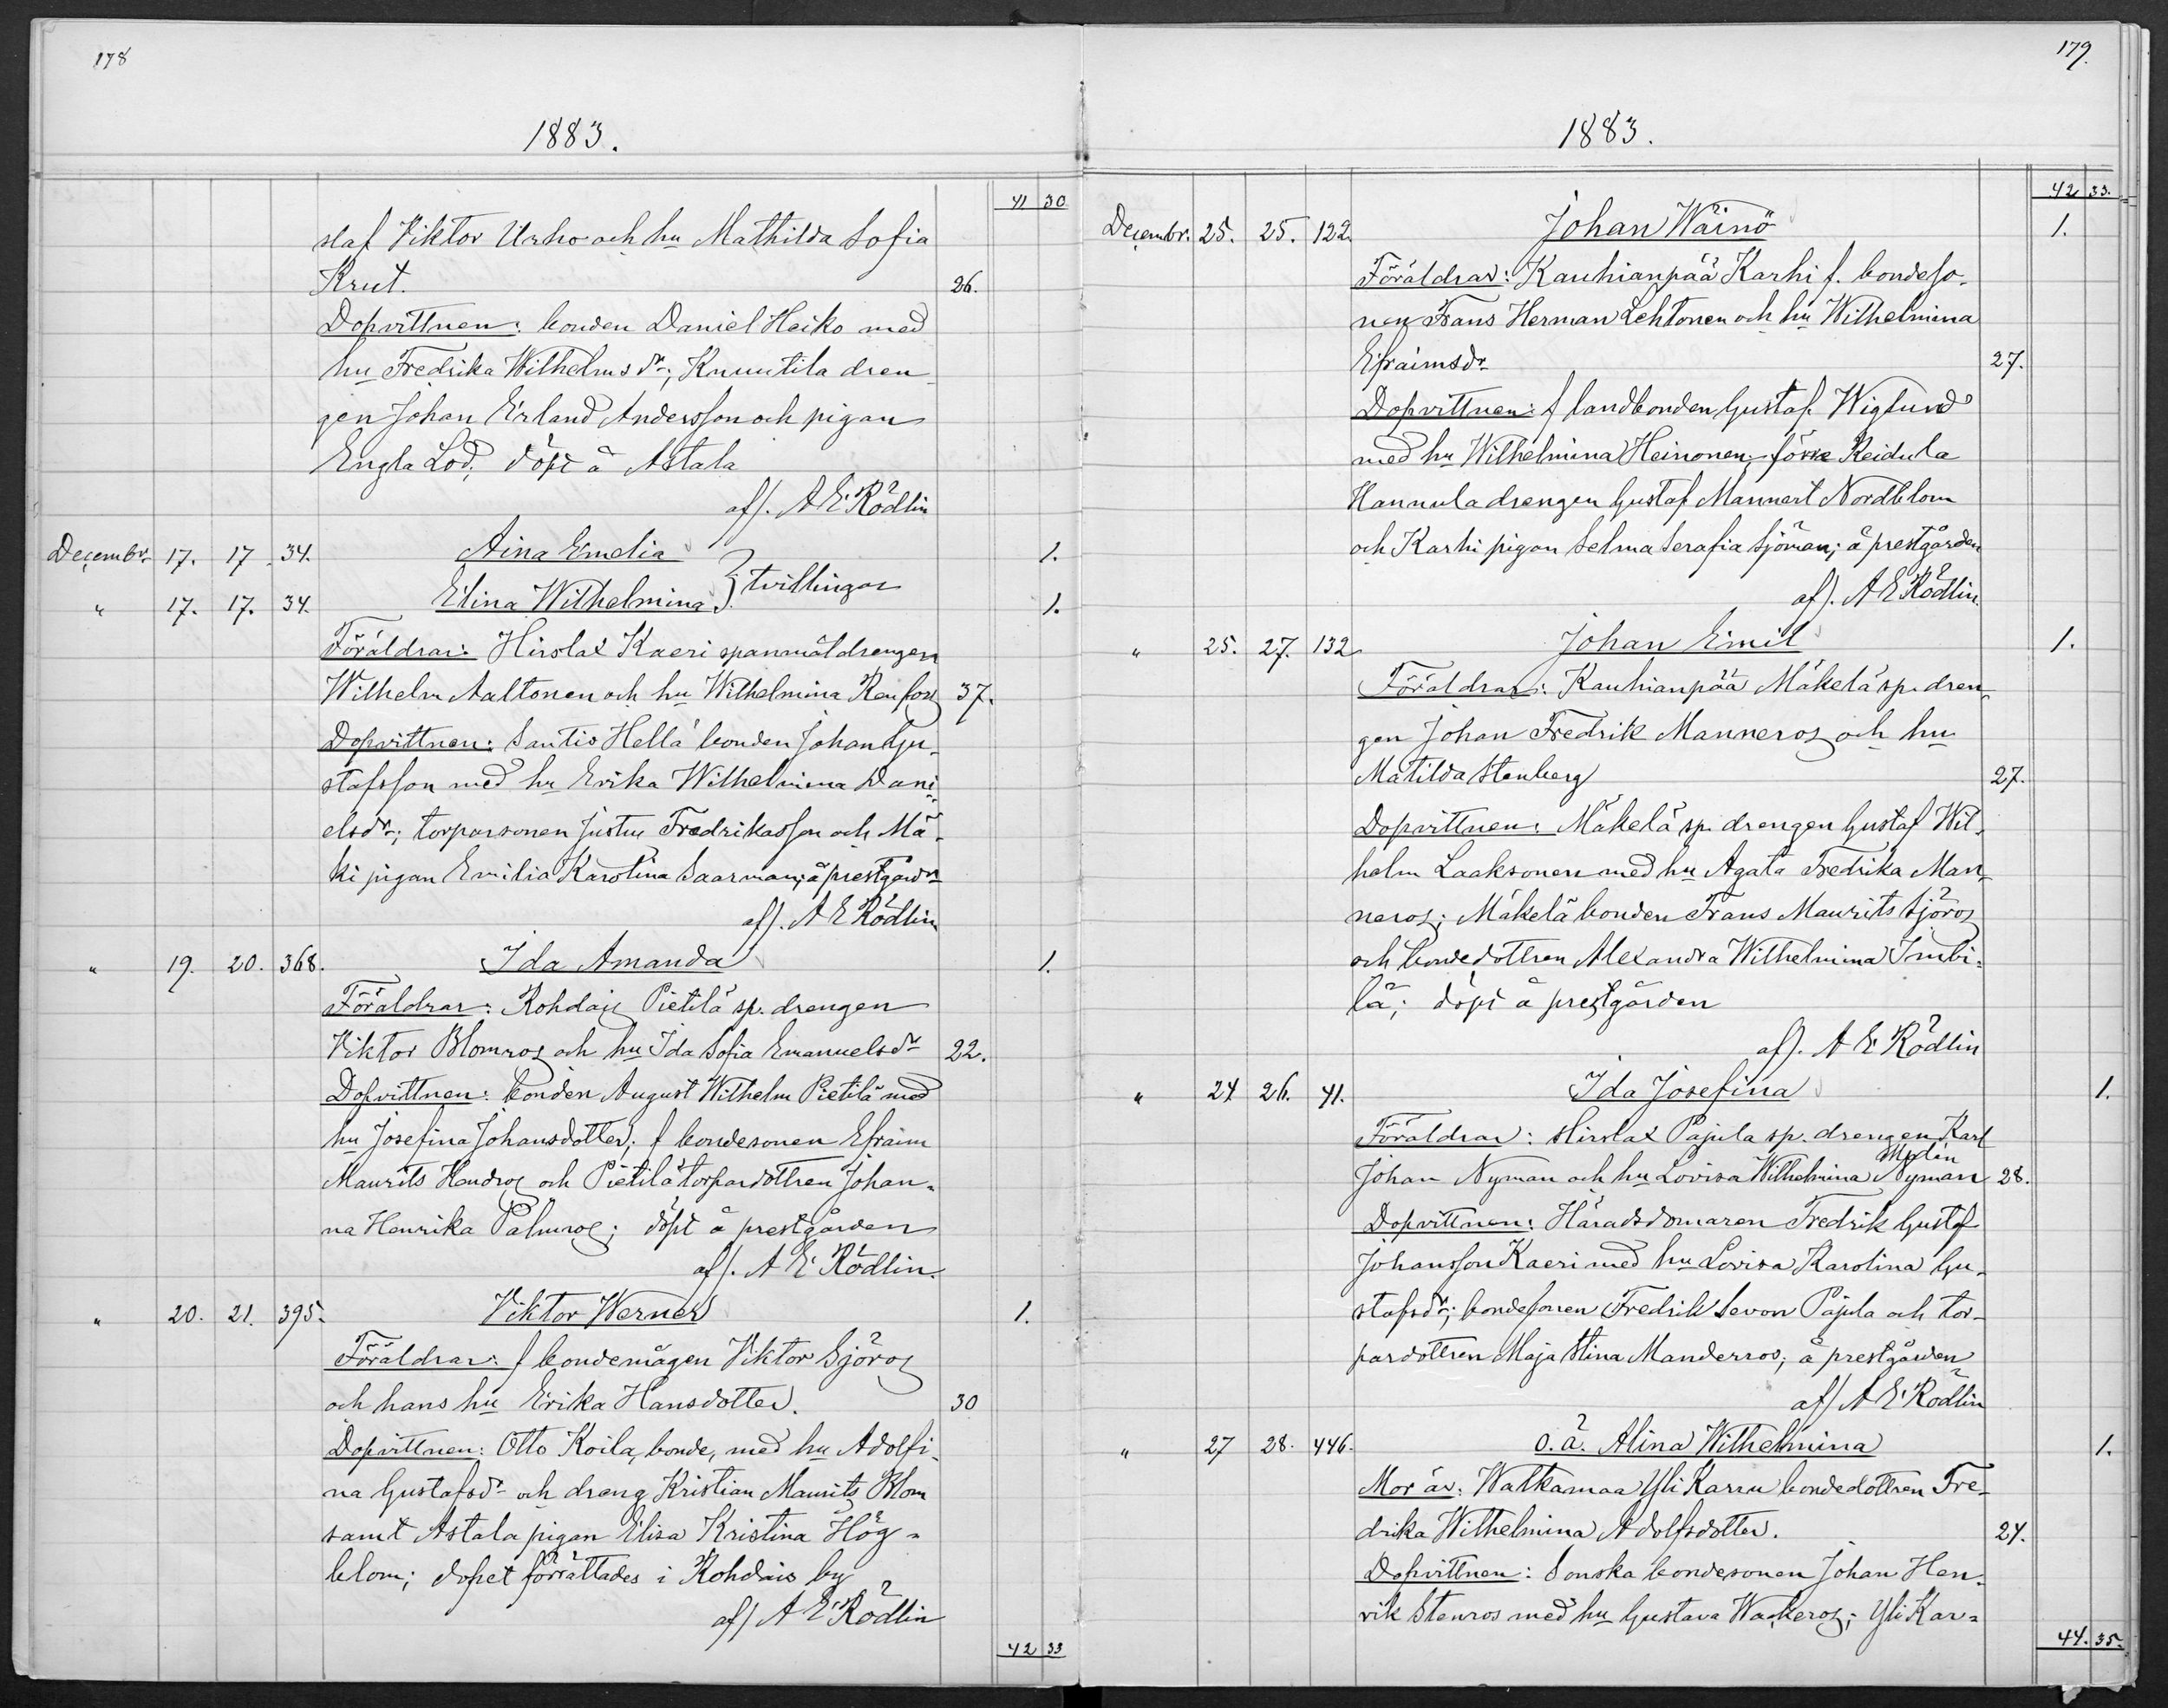 178
1883.
41 30
staf Viktor Urho och hu Mathilda Sofia
Krut. 26.
Dopvittnen: bonden Daniel Heiko med
hu Fredrika Wilhelmsdr; Knuutila dren
gen Johan Erland Andersson och pigan
Engla Löd; döpt å Astala
af). A E Rödlin
Decembr 17. 17 34. Aina Emelia 1.
} tvillingar
" 17. 17. 34. Elina Wilhelmina 1.
Föräldrar: Hirslax Kaeri spanmåldrengen
Wilhelm Aaltonen och hu Wilhelmina Renfors 37.
Dopvittnen: Santio Hellä bonden Johan Gu-
stafsson med hu Erika Wilhelmina Dani-
elsdr; torparsonen Justus Fredriksson och Mä-
ki pigan Emilia Karolina Saarman; å prestgårdn
af). A E Rödlin
" 19. 20. 368. Ida Amanda 1.
Föräldrar: Rohdais Pietilä sp. drengen
Viktor Blomros och hu Ida Sofia Emanuelsdr 22.
Dopvittnen: bonden August Wilhelm Pietilä med
hu Josefina Johansdotter; f bondesonen Efraim
Maurits Hendros och Pietilä torpardottren Johan-
na Henrika Palmros; döpt å prestgården
af). A E Rödlin.
" 20. 21. 395. Viktor Werner 1.
Föräldrar: f bondemågen Viktor Sjöros
och hans hu Erika Hansdotter. 30
Dopvittnen: Otto Koila, bonde, med hu Adolfi-
na Gustafsdr och dreng Kristian Maurits Blom
samt Astala pigan Elisa Kristina Hög-
blom; dopet förrättades i Rohdais by
af) A E Rödlin
42 33
179.
1883.
42 33.
Decembr. 25. 25. 122. Johan Wäinö 1.
Föräldrar: Kauhianpää Karhi f. bondeso-
nen Frans Herman Lehtonen och hu Wilhelmina
Efraimsdr 27.
Dopvittnen: f landbonden Gustaf Wiglund
med hu Wilhelmina Heinonen; förre Keidula
Hannula drengen Gustaf Mannert Nordblom
och Karhi pigan Selma Serafia Sjöman; å prestgården
af). A E Rödlin.
" 25. 27. 132 Johan Emil 1.
Föräldrar: Kauhianpää Mäkelä sp. dren-
gen Johan Fredrik Manneros och hu
Matilda Stenberg 27.
Dopvittnen: Mäkelä sp. drengen Gustaf Wil-
helm Laaksonen med hu Agata Fredrika Man-
neros; Mäkelä bonden Frans Maurits Sjöros
och bondedottren Alexandra Wilhelmina Inubi-
lä; döpt å prestgården
af). A E Rödlin
" 24 26. 41. Ida Josefina 1.
Föräldrar: Hirslax Pajula sp. drengen Karl
Johan Nyman och hu Lovisa Wilhelmina Nyman 28.
Dopvittnen: Häradsdomaren Fredrik Gustaf
Johansson Kaeri med hu Lovisa Karolina Gu-
stafsdr; bondesonen Fredrik Sevon Pajula och tor-
pardottren Maja Stina Manderros; å prestgården
af) A E Rödlin
" 27 28. 446. o.ä. Alina Wilhelmina 1.
Mor är: Watkamaa Yli Karru bondedottren Fre-
drika Wilhelmina Adolfsdotter. 24.
Dopvittnen: Sonska bondesonen Johan Hen-
rik Stenros med hu Gustava Wackeros; Yli Kar-
44. 35.